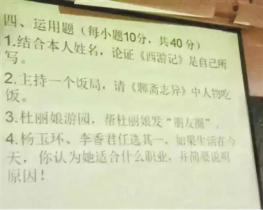 四、运用题（每小题10分，共40分）
1.结合本人姓名，论证《西游记》是自己所
写。
2.主持一个饭局，请《聊斋志异》中人物吃
饭。
3.杜丽娘游园，帮杜丽娘发“朋友圈”。
4.杨玉环、李香君任选其一，如果生活在今
天，你认为她适合什么职业，并简要说明
原因！